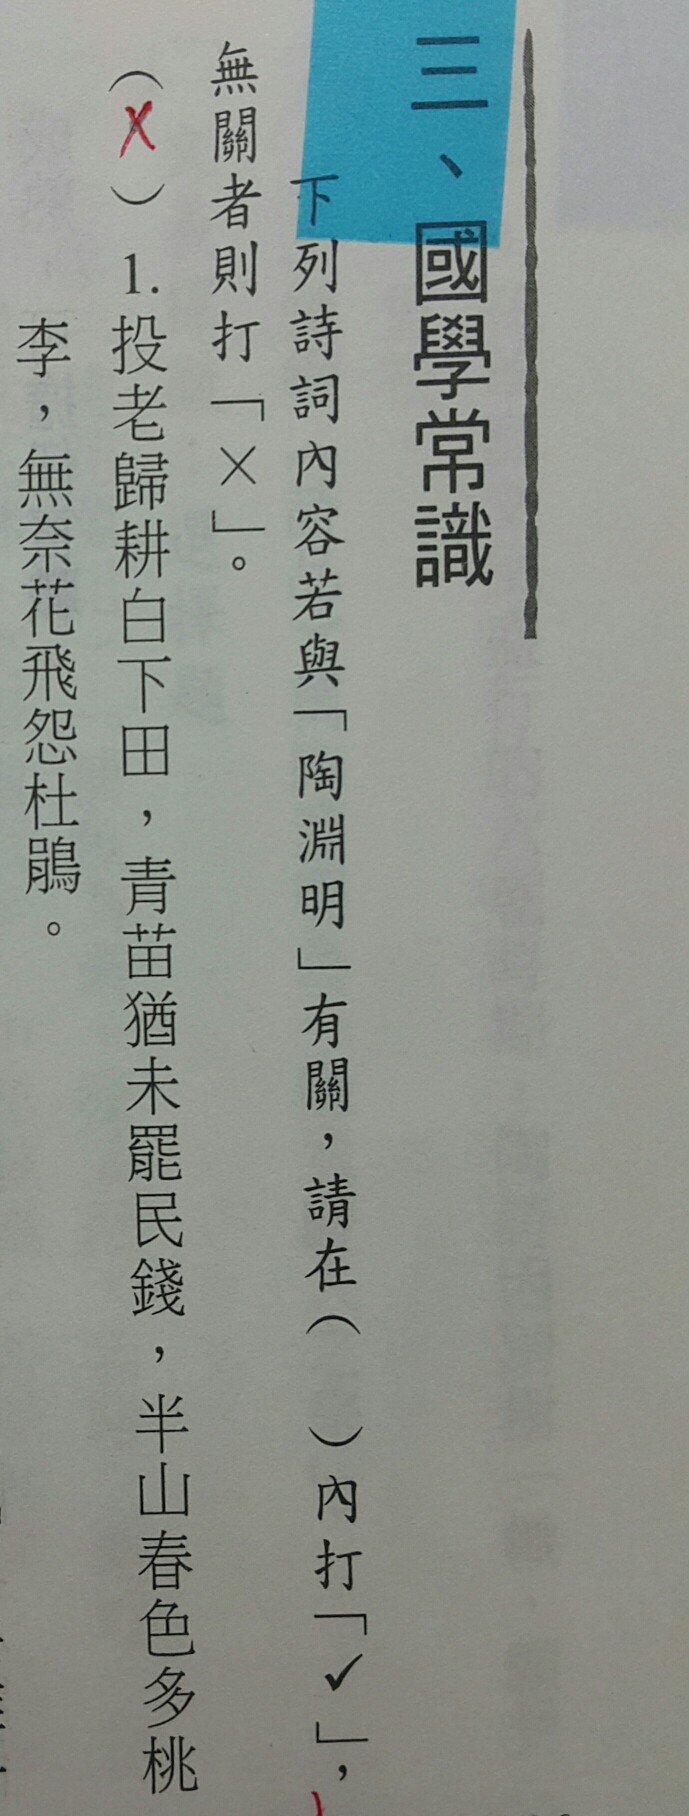 三、國學常識
下列詩詞內容若與「陶淵明」有關，請在（　）內打「✓」，
無關者則打「×」。
（X）1.投老歸耕白下田，青苗猶未罷民錢，半山春色多桃
李，無奈花飛怨杜鵑。